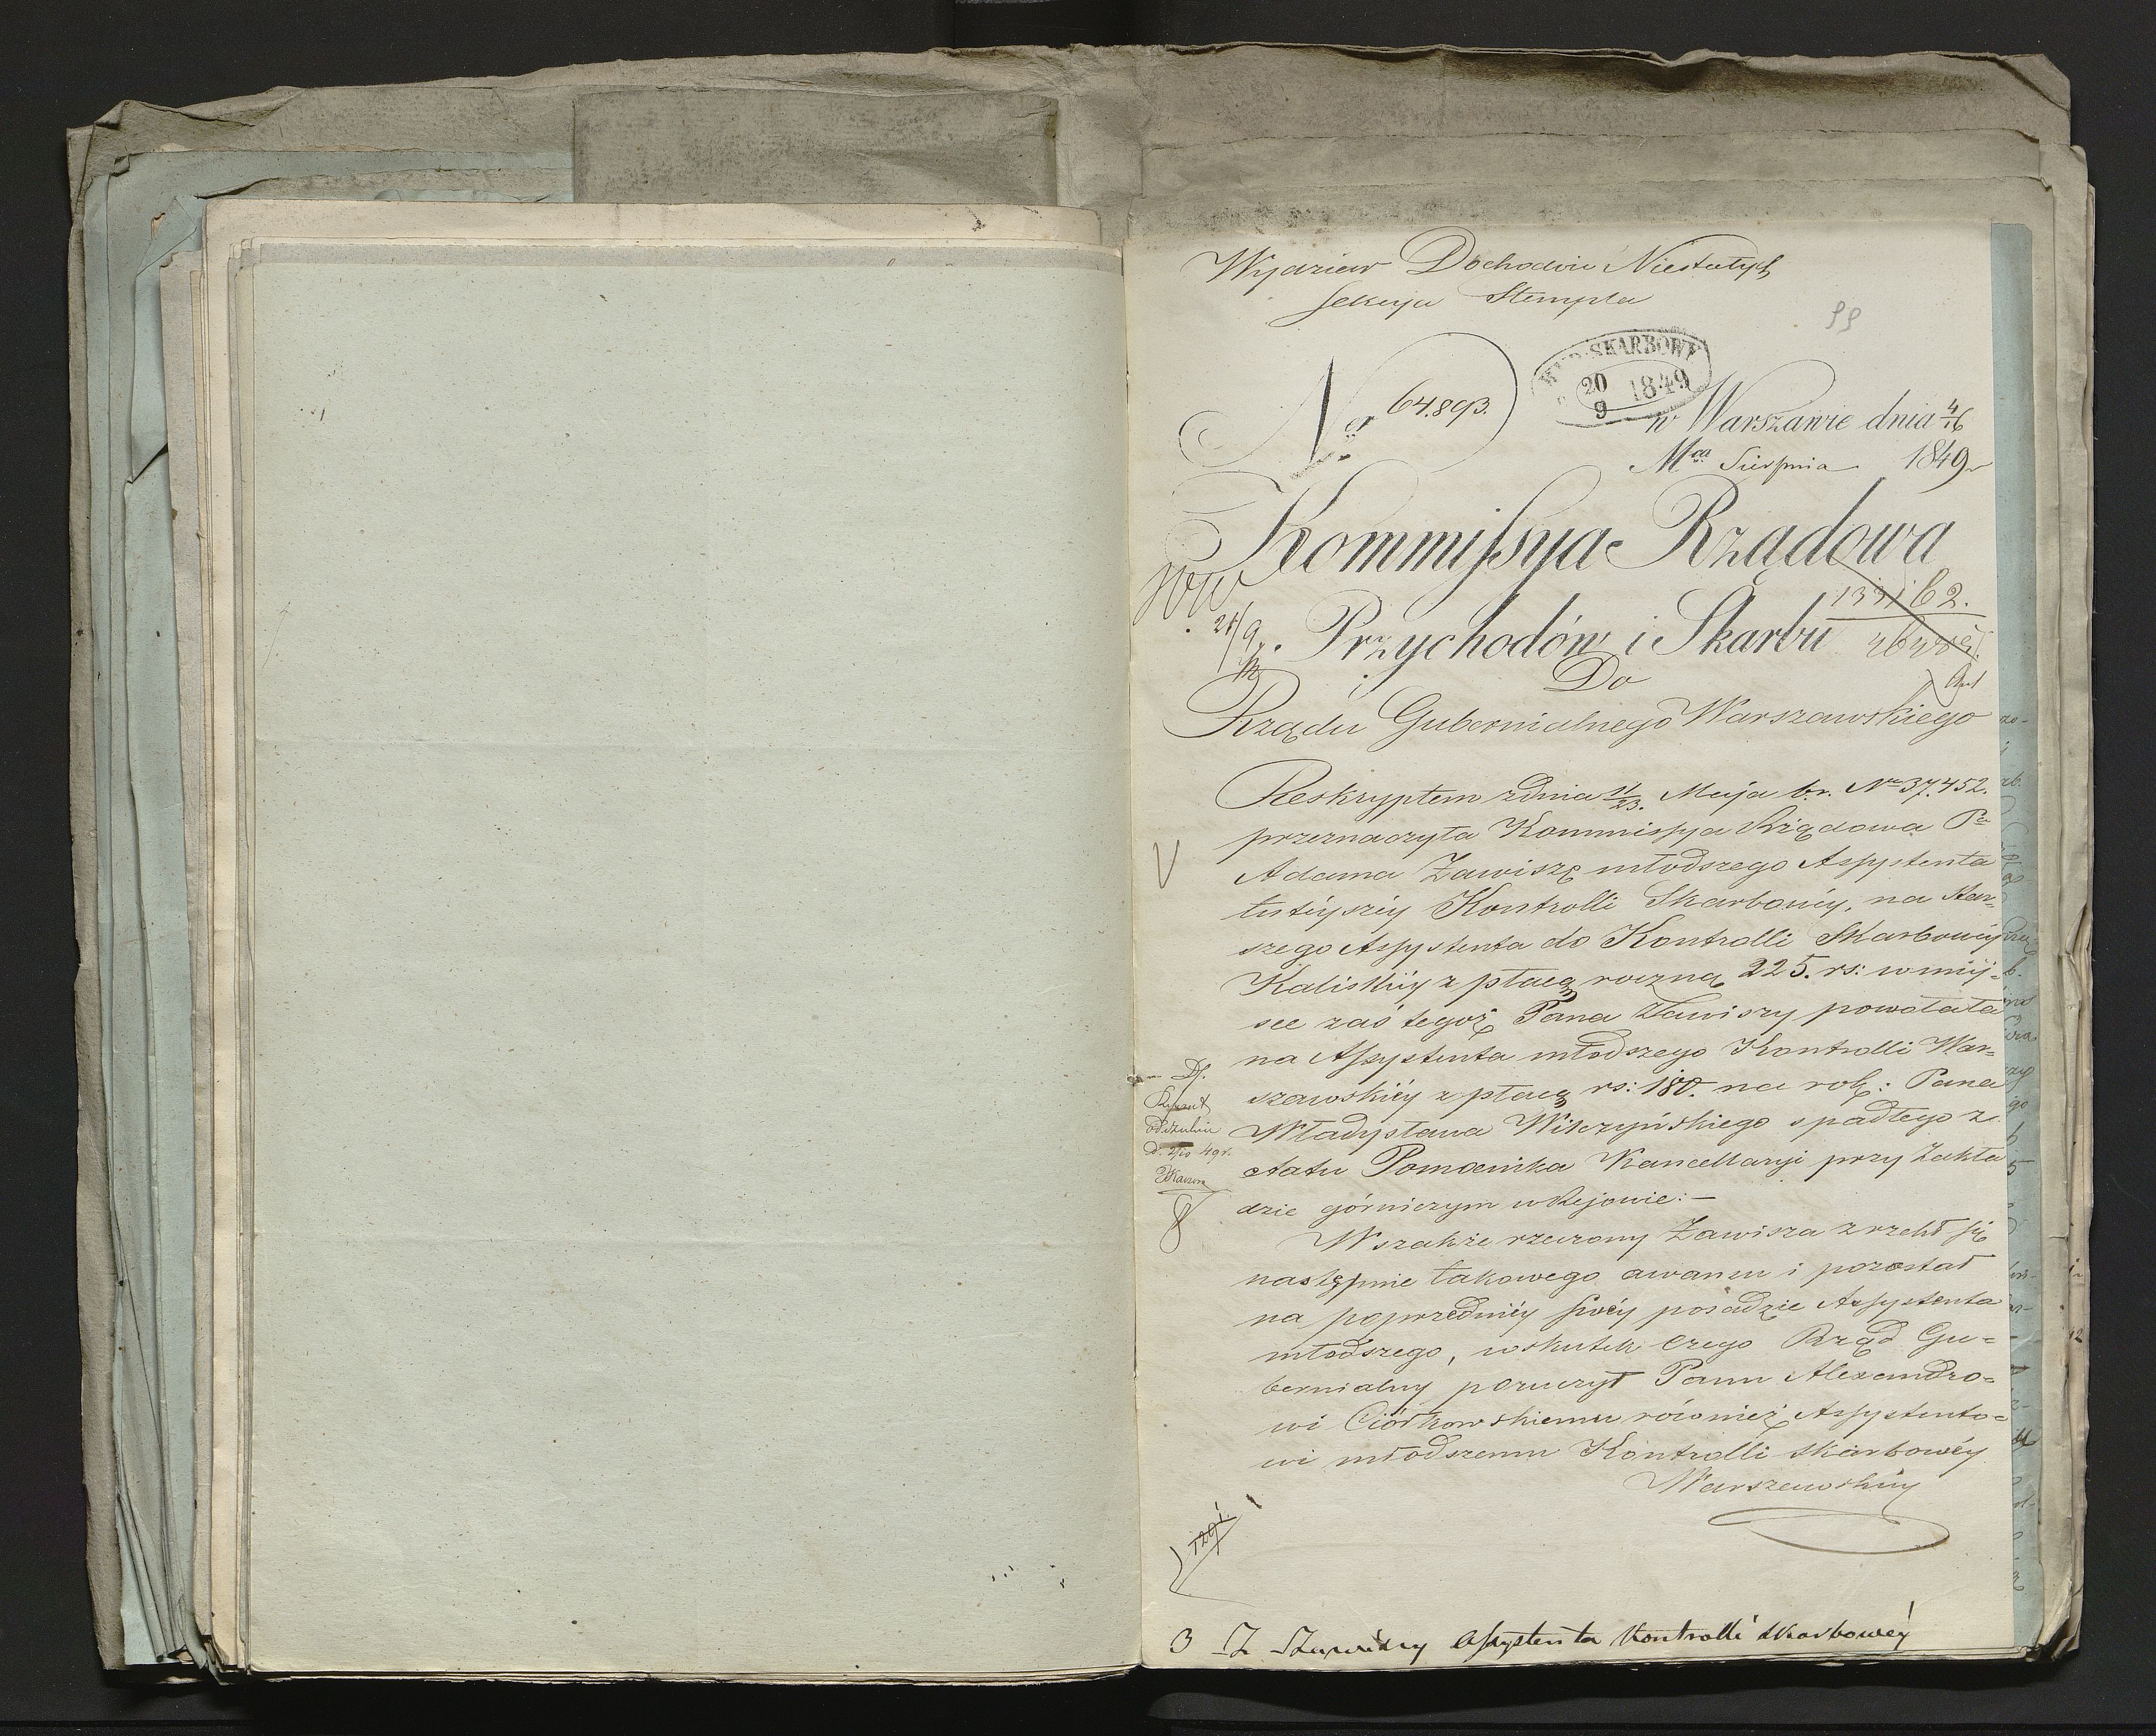 Wydział Dochodów Niestałych
Sekcya Stempla
99
SKARBOWY
20
9 1849
Nr 64.893.
w Warszawie dnia 4/16
Mca Sierpnia 1849 r
Kommissya Rządowa
Przychodów i Skarbu
21/9
Do
Rządu Gubernialnego Warszawskiego
Reskryptem z dnia 11/23. Maja b.r. Nr 37.452.
przeznaczyła Kommissya Rządowa Pa
Adama Zawiszę młodszego Assystenta
tutéyszéy Kontrolli Skarbowéy, na star=
szego Assystenta do Kontrolli Skarbowéy
Kaliskiéy z płacą roczną 225. rs: w miéy=
sce zaś tegoż Pana Zawiszy powołała
na Assystenta młodszego Kontrolli War=
szawskiéy z płacą rs: 180. na rok: Pana
Władysława Wilczyńskiego spadłego z
etatu Pomocnika Kancellaryi przy Zakła
dzie górniczym w Rejowie:—
Wszakże rzeczony Zawisza zrzekł się
następnie takowego awansu i pozostał
na poprzedniéy swéy posadzie Assystenta
młodszego, wskutek czego Rząd Gu=
bernialny poruczył Panu Alexandro=
wi Ciórkowskiemu również Assystento=
wi młodszemu Kontrolli skarbowéy
Warszawskiéy
3 Z Szawiszy Assystenta Kontrolli skarbowéy